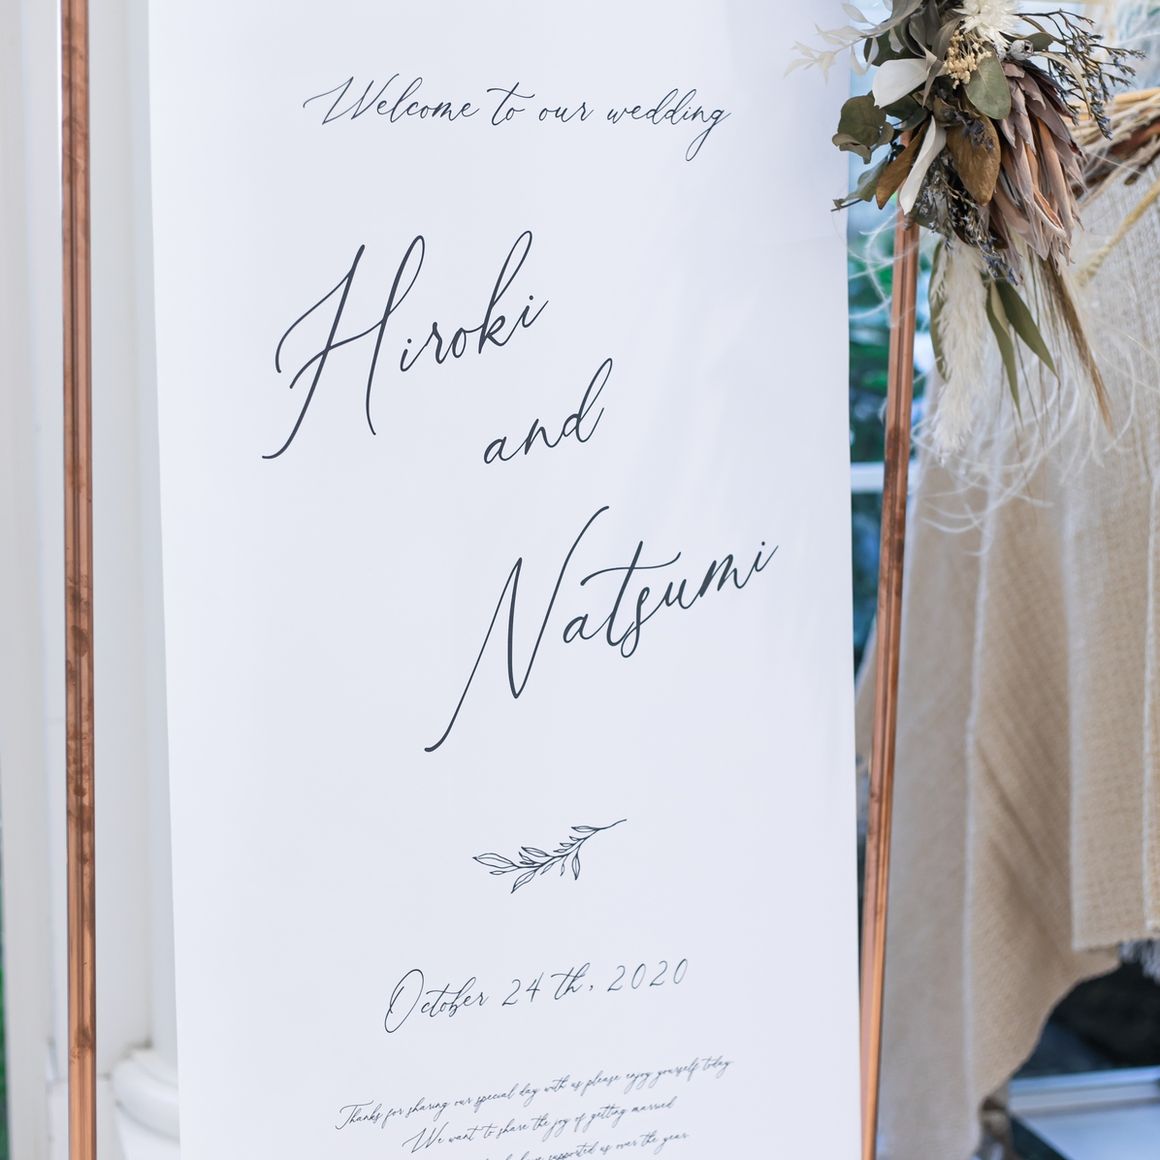 Welcome to our wedding
Hiroki
and
Natsumi
October 24th, 2020
Thanks for sharing our special day with us please enjoy yourself today
We want to share the joy of getting married
supported us over the year